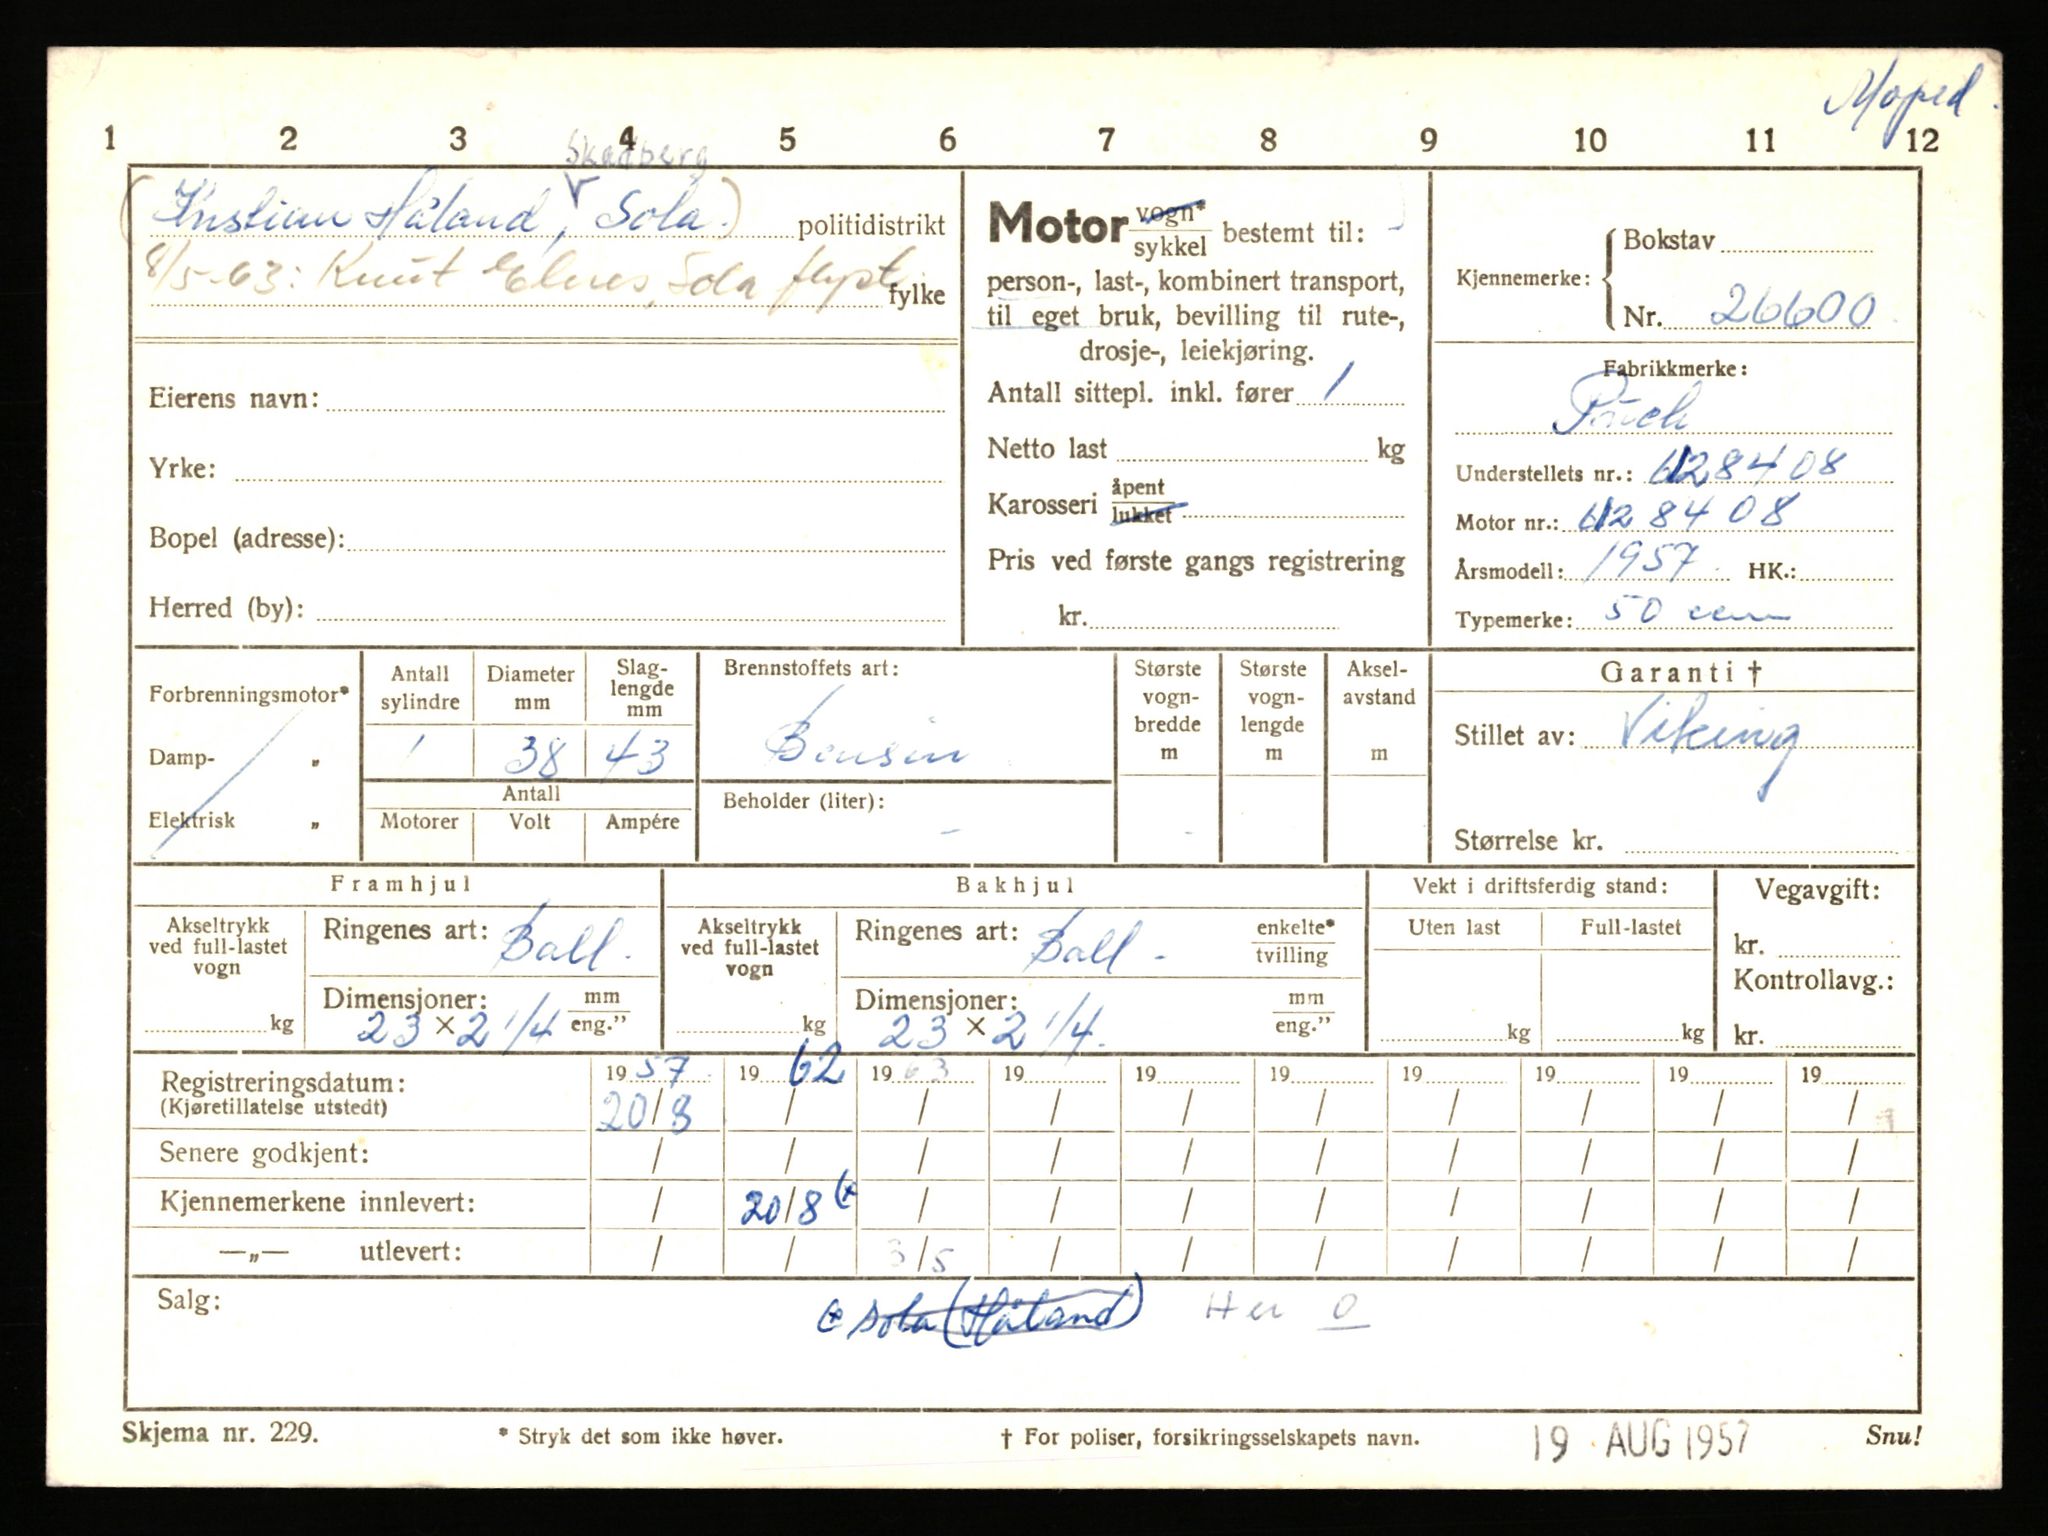 Moped.
1 2 3 4 5 6 7 8 9 10 11 12
Skadberg
(Kristian Håland, Sola.) politidistrikt
8/5-63: Knut Elnes, Sola flypl. fylke
Eierens navn:
Yrke:
Bopel (adresse):
Herred (by):
Motor vogn* / sykkel bestemt til:
person-, last-, kombinert transport,
til eget bruk, bevilling til rute-,
drosje-, leiekjøring.
Antall sittepl. inkl. fører 1
Netto last kg
Karosseri åpent / lukket
Pris ved første gangs registrering
kr.
Kjennemerke: Bokstav
Nr. 26600
Fabrikkmerke:
Puch
Understellets nr.: 6128408
Motor nr.: 6128408
Årsmodell: 1957. HK.:
Typemerke: 50 ccm
Forbrenningsmotor*
Damp- „
Elektrisk „
Antall sylindre
1
Diameter mm
38
Slag-lengde mm
43
Antall
Motorer Volt Ampére
Brennstoffets art:
Bensin
Beholder (liter): -
Største vogn-bredde m
Største vogn-lengde m
Aksel-avstand m
Garanti †
Stillet av: Viking
Størrelse kr.
Framhjul
Akseltrykk ved full-lastet vogn
kg
Ringenes art: Ball.
Dimensjoner: mm / eng.”
23 × 2 1/4
Bakhjul
Akseltrykk ved full-lastet vogn
kg
Ringenes art: Ball - enkelte* / tvilling
Dimensjoner: mm / eng.”
23 × 2 1/4.
Vekt i driftsferdig stand:
Uten last Full-lastet
kg kg
Vegavgift:
kr.
Kontrollavg.:
kr.
Registreringsdatum: 1957 1962 1963 19 19 19 19 19 19 19
(Kjøretillatelse utstedt) 20/8 / / / / / / / / /
Senere godkjent: / / / / / / / / / /
Kjennemerkene innlevert: / 20/8 (x / / / / / / / /
—„— utlevert: / / 3/5 / / / / / / /
Salg: (x Sola (Håland) Her 0
Skjema nr. 229. * Stryk det som ikke høver. † For poliser, forsikringsselskapets navn. 19 AUG 1957 Snu!